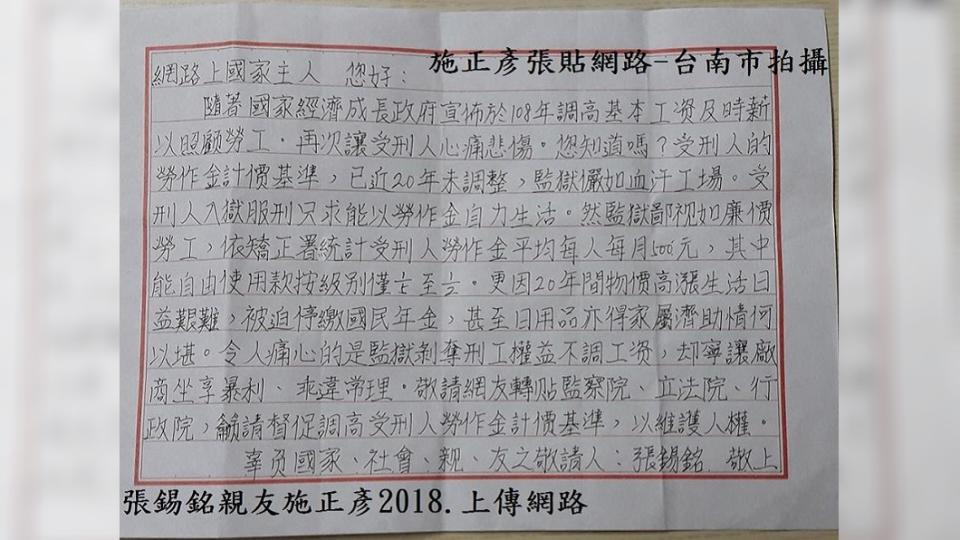 施正彥張貼網路-台南市拍攝
網路上國家主人 您好：
隨著國家經濟成長政府宣佈於108年調高基本工资及時薪
以照顧勞工．再次讓受刑人心痛悲傷。您知道嗎？受刑人的
勞作金計價基準，已近20年未調整，監獄儼如血汗工場。受
刑人入獄服刑只求能以勞作金自力生活。然監獄鄙视如廉價
勞工，依矯正署統計受刑人勞作金平均每人每月500元，其中
能自由使用款按級別僅
至
。更因20年間物價高漲生活日
益艱難，被迫停繳國民年金，甚至日用品亦得家屬濟助情何
以堪。令人痛心的是監獄剝奪刑工權益不調工资，却寧讓廠
商坐享暴利、乖違常理．敬請網友轉貼監察院、立法院、行
政院，籲請督促調高受刑人勞作金計價基準，以維護人權。
辜负國家、社會、親、友之敬請人：張錫銘 敬上
張錫銘親友施正彥2018.上傳網路